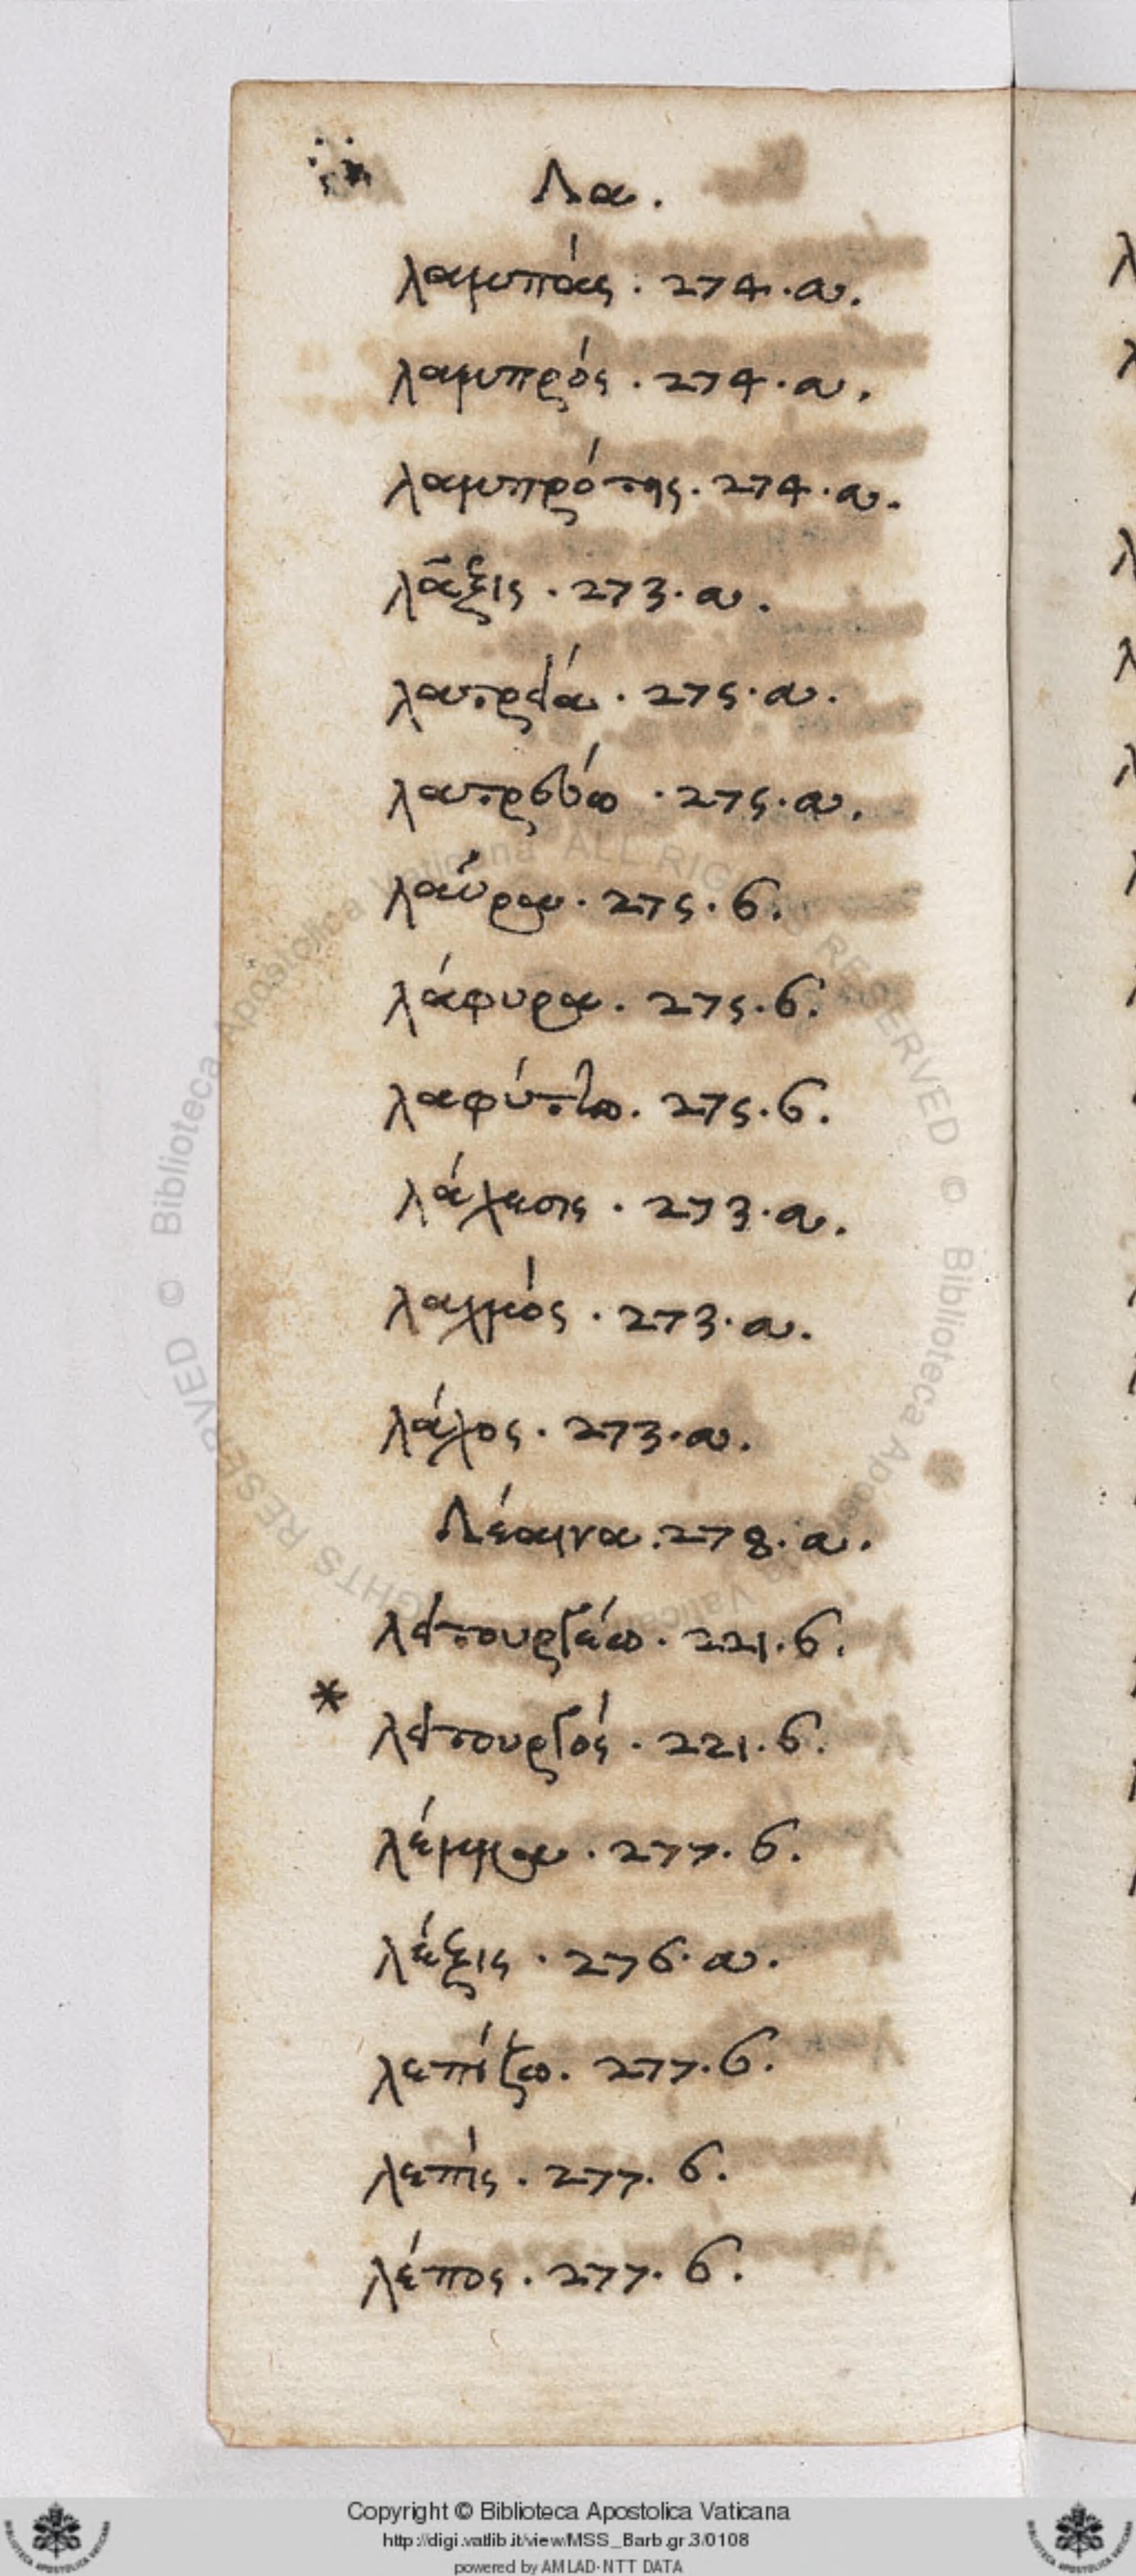 Λα.
λαμπάς . 274 . α.
λαμπρός . 274 . α.
λαμπρότης . 274 . α.
λᾶξις . 273 . α.
λατρεία . 275 . α.
λατρεύω . 275 . α.
λαύρα . 275 . β.
λάφυρα . 275 . β.
λαφύττω . 275 . β.
λάχεσις . 273 . α.
λαχμός . 273 . α.
λάχος . 273 . α.
Λέαινα . 278 . α.
λειτουργέω . 221 . β.
* λειτουργός . 221 . β.
λέμμα . 277 . β.
λέξις . 276 . α.
λεπίζω . 277 . β.
λεπίς . 277 . β.
λέπος . 277 . β.
Copyright © Biblioteca Apostolica Vaticana
http://digi.vatlib.it/view/MSS_Barb.gr.3/0108
powered by AMLAD-NTT DATA